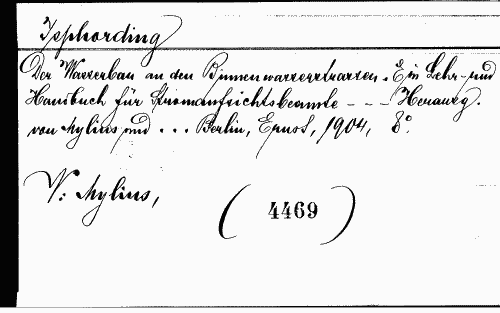 Isphording
Der Wasserbau an den Binnenwasserstrassen. Ein Lehr- und
Handbuch für Stromaufsichtsbeamte - - - Herausg.
von Mylius und ... Berlin, Ernst, 1904, 8°.
V: Mylius,
(4469)